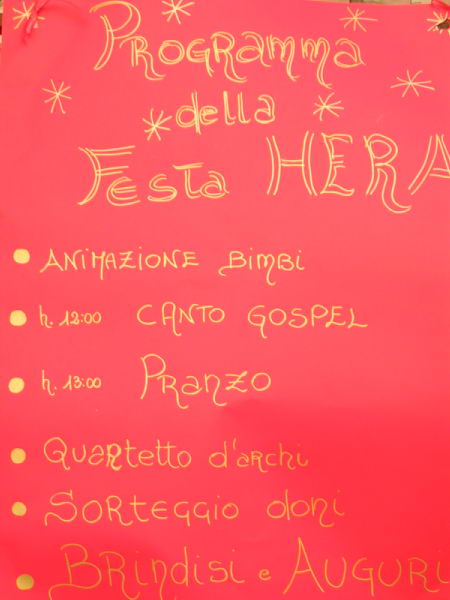 Programma
della
Festa HERA
ANIMAZIONE BIMBI
h. 12:00 CANTO GOSPEL
h. 13:00 PRANZO
Quartetto d'archi
SORTEGGIO doni
BRindisi e AUGURI